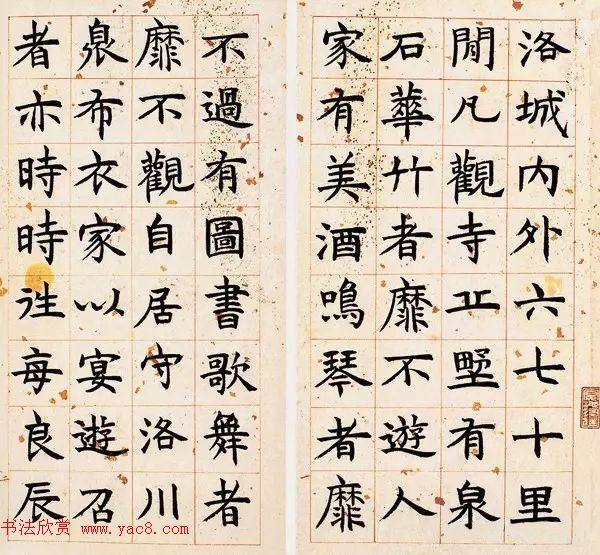 洛城内外六七十里
閒凡觀寺丘墅有泉
石華竹者靡不遊人
家有美酒鳴琴者靡
不過有圖書歌舞者
靡不觀自居守洛川
泉布衣家以宴遊召
者亦時時往每良辰
书法欣赏 www.yac8.com